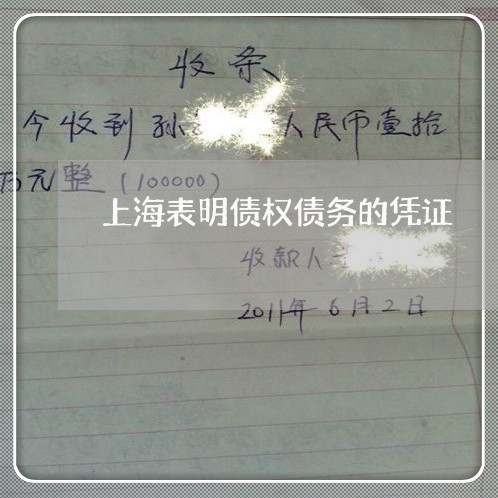 收条
今收到孙 人民币壹拾
万元整(100000)
上海表明债权债务的凭证
收款人
2011年6月2日